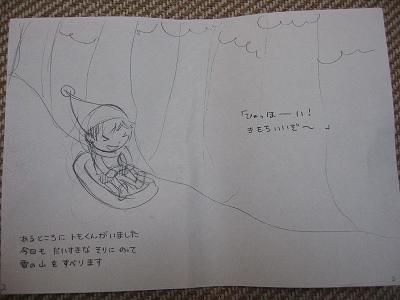 「ひゃっほーい!
きもちいいぞ〜 」
あるところに トモくんがいました
今日も だいすきな そりに のって
雪の山 を すべります
2